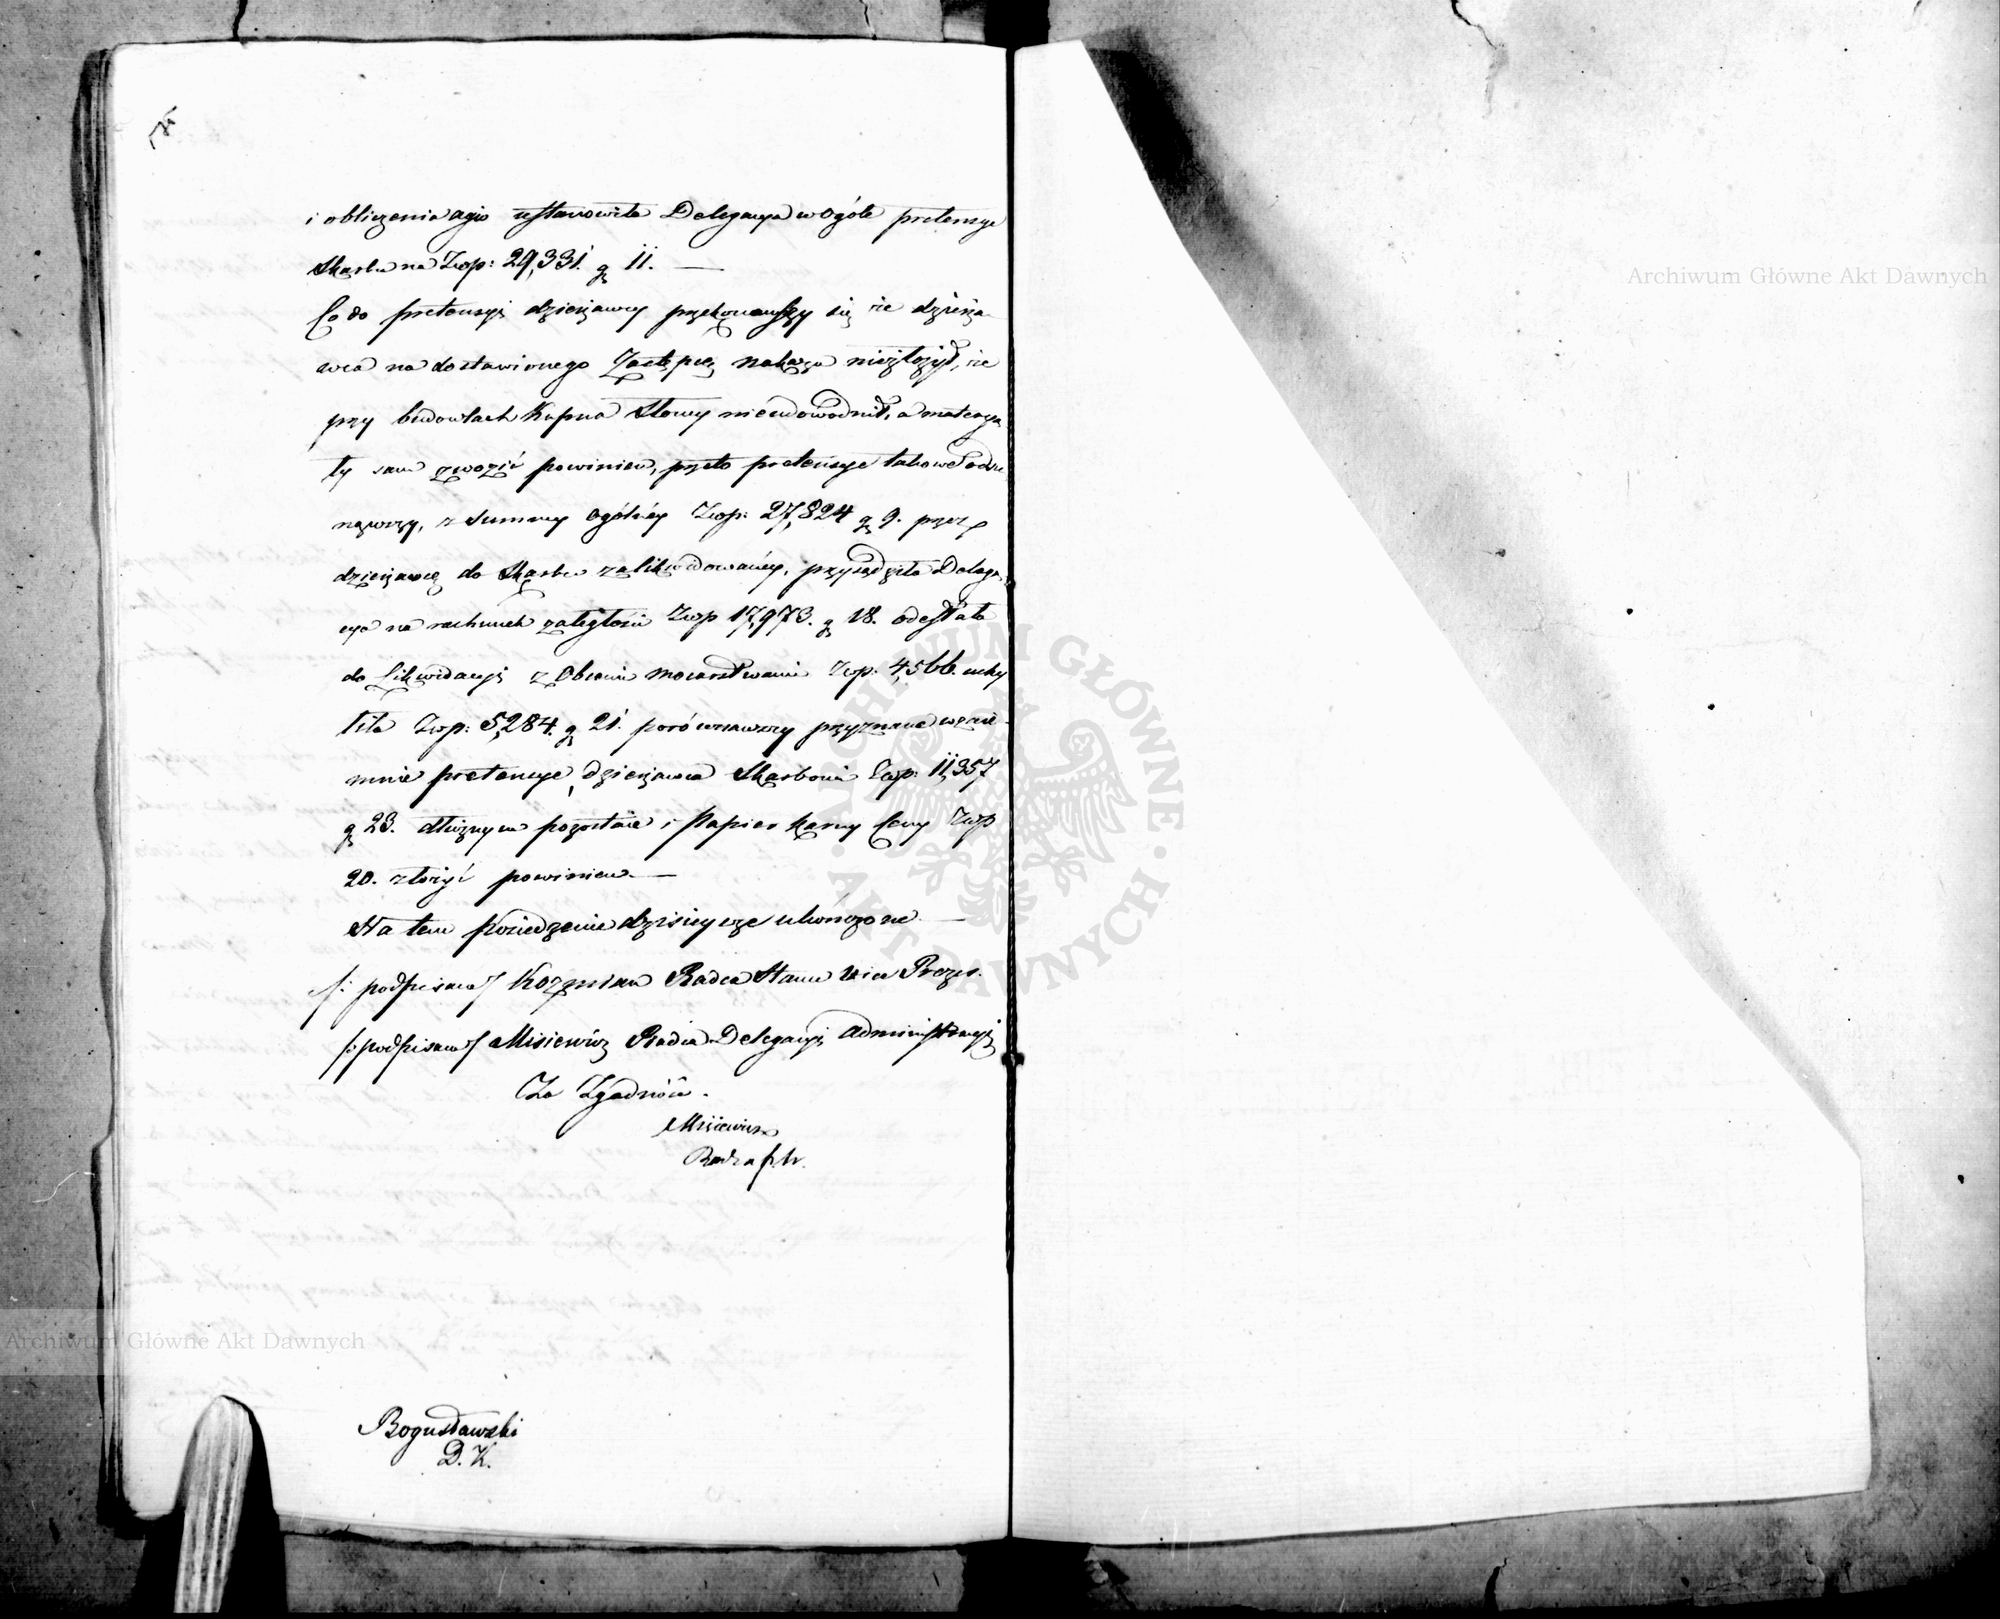 i obliczenia agio ustanowiła Delegacya w ogóle pretensye
Skarbu na Złp: 29,331. gr 11. —
Co do pretensyi dzierżawcy przekonawszy się że dzierża-
wca na dostawionego Zastępcę nakazu niezłożył, że
przy budowlach Kupna Słomy nieudowodnił, a materya-
ły sam zwozić powinien, przeto pretensye takowe odrzu-
ciwszy, z Summy ogólnéy Złp: 27,824 gr 9. przez
dzierżawcę do Skarbu zalikwidowanéy, przysądziła Delega-
cya na rachunek zaległości Złp 17,973. gr 18. odesłała
do Likwidacyi z Obcemi mocarstwami Złp. 4,566. uchy-
liła Złp: 5,284. gr 21. porównawszy przyznane wzaie-
mnie pretensye, dzierżawca Skarbowi Złp: 11,357
gr 23. dłużnym pozostaie i Papier karny Ceny Złp
20. złożyć powinien. —
Na tem posiedzenie dzisieysze ukończone —
/: podpisano/ Kozmian Radca Stanu Vice Prezes.
/: podpisano/ Misiewicz Radca Delegacyi Administracyi
Za Zgodność.
Misiewicz
Bogusławski
D. K.
Archiwum Główne Akt Dawnych
Archiwum Główne Akt Dawnych
ARCHIWUM GŁÓWNE · AKT DAWNYCH ·